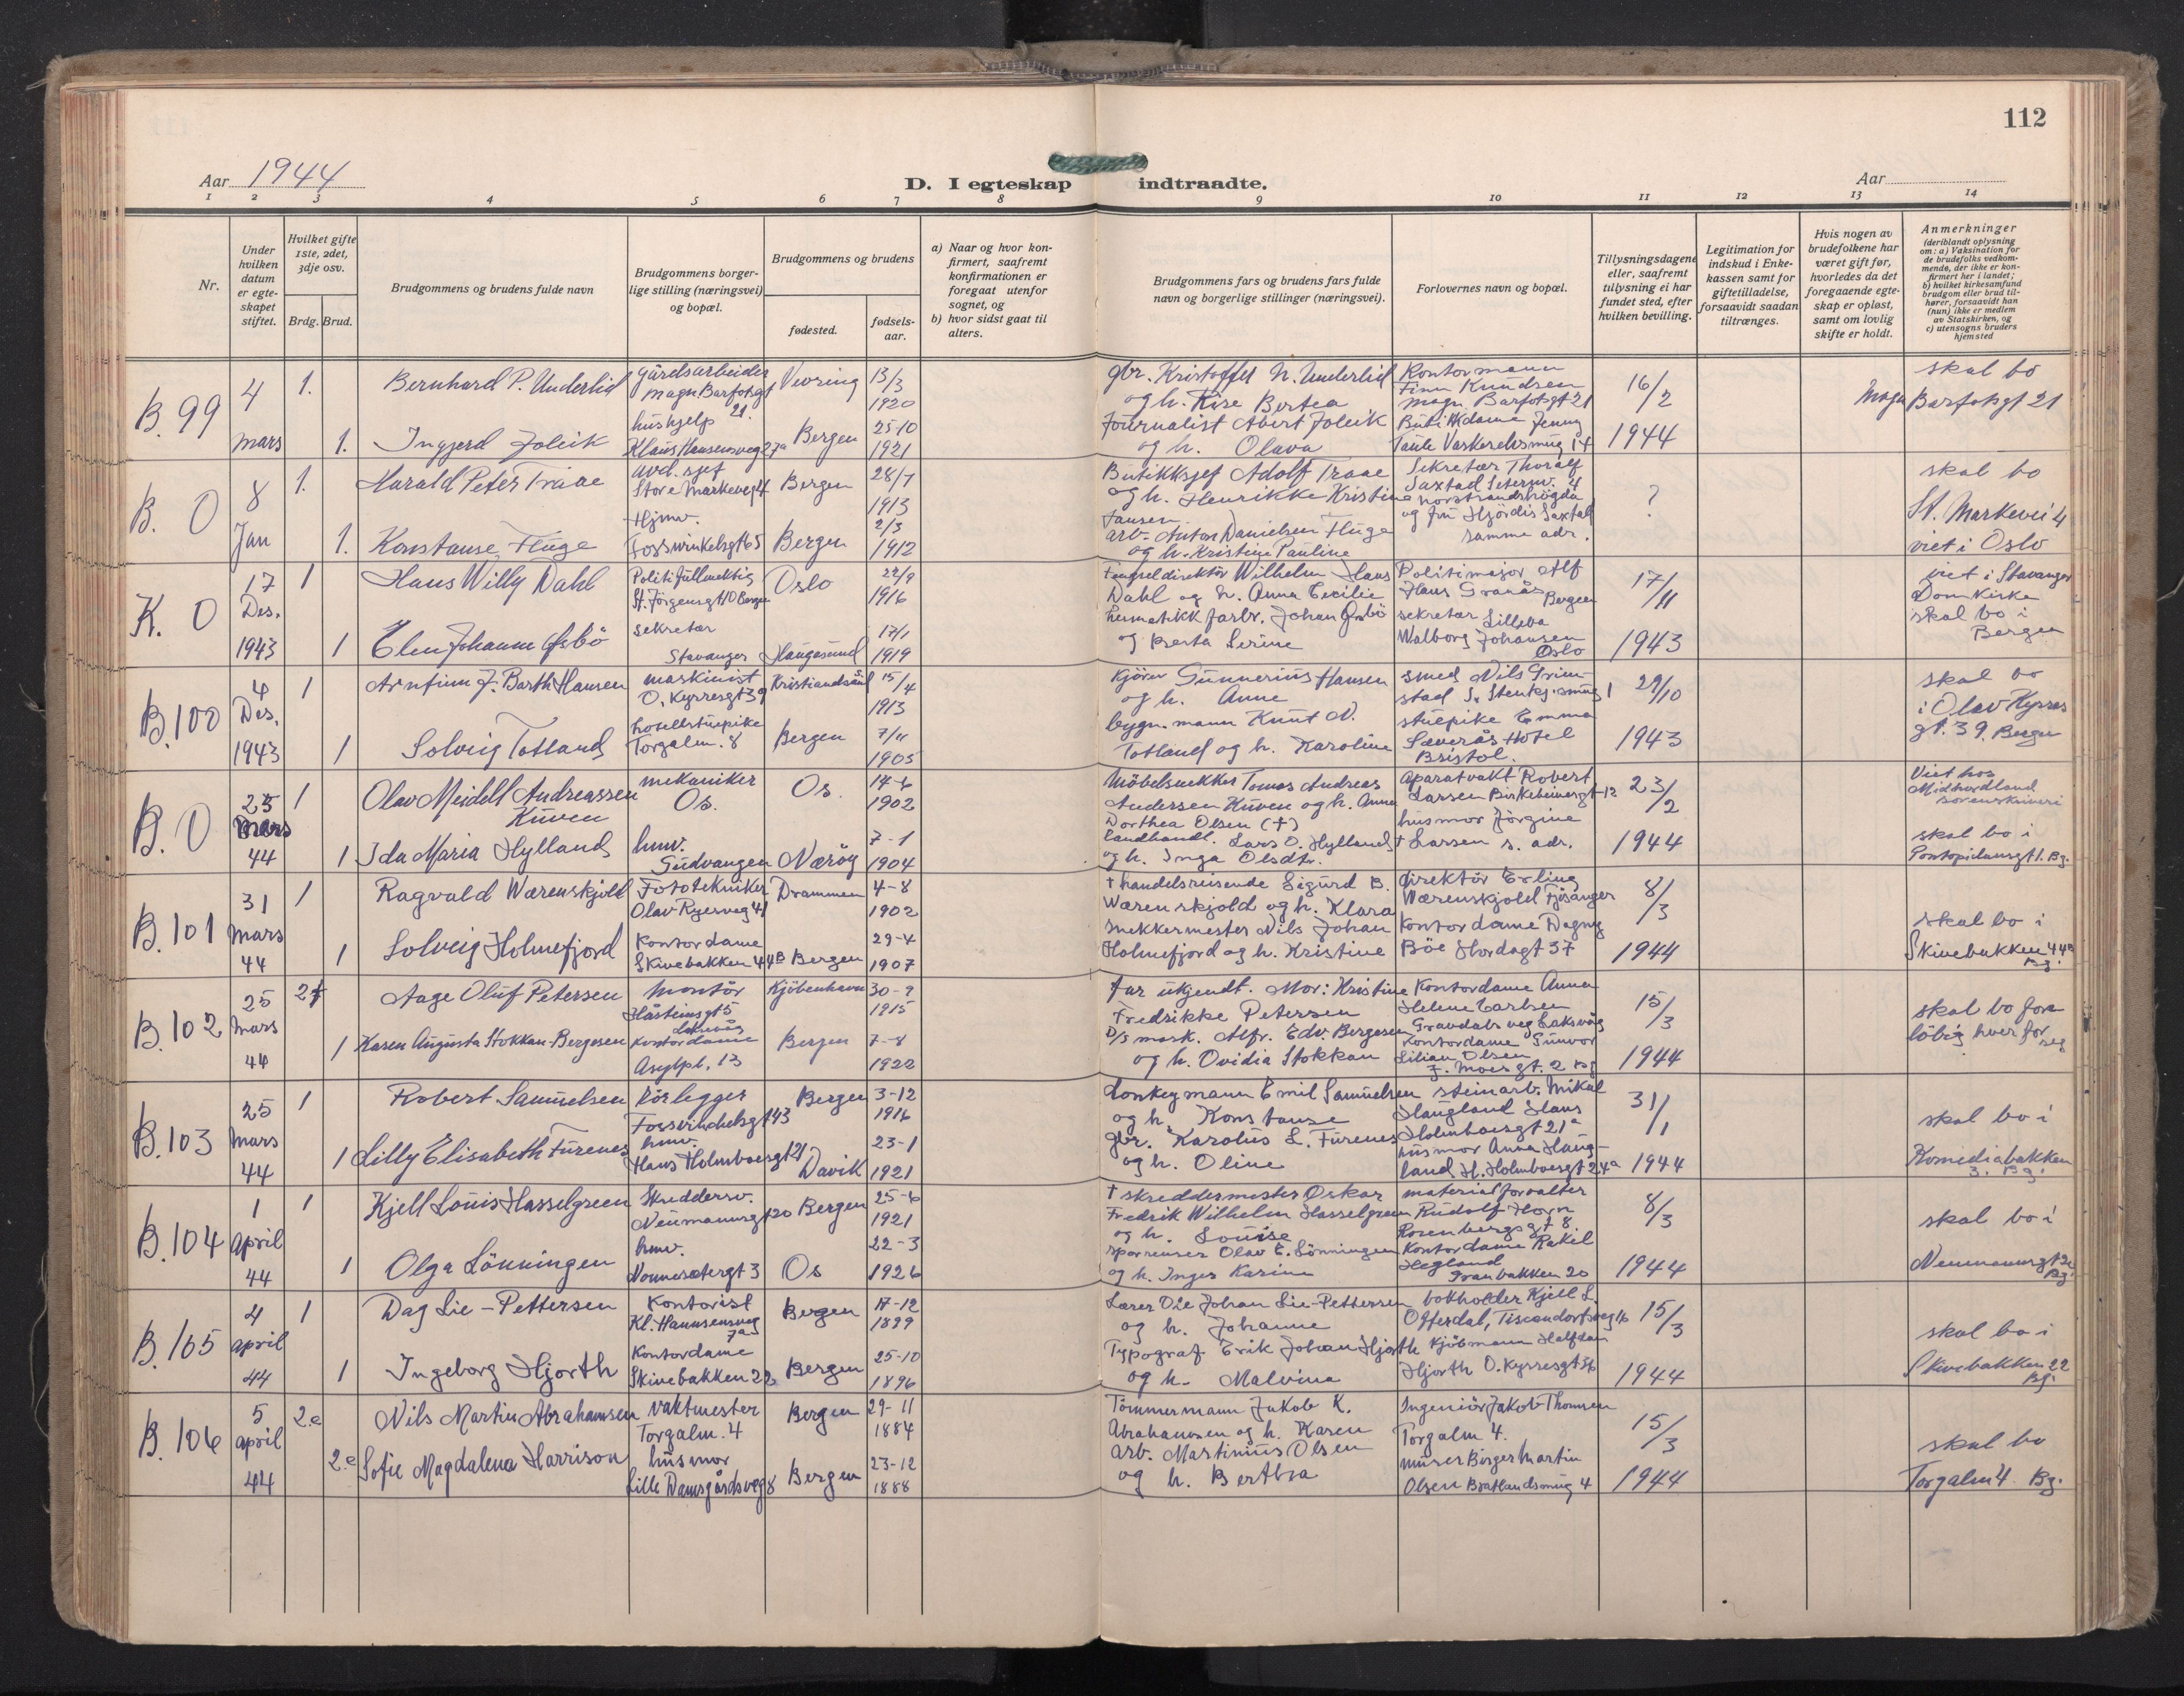 112
Aar 1944
D. I egteskap indtraadte.
Aar
1 2 3 4 5 6 7 8 9 10 11 12 13 14
Nr.
Under hvilken datum er egte-skapet stiftet.
Hvilket gifte 1ste, 2det, 3dje osv.
Brdg. Brud.
Brudgommens og brudens fulde navn
Brudgommens borger-lige stilling (næringsvei) og bopæl.
Brudgommens og brudens
fødested.
fødsels-aar.
a) Naar og hvor kon-firmert, saafremt konfirmationen er foregaat utenfor sognet, og
b) hvor sidst gaat til alters.
Brudgommens fars og brudens fars fulde navn og borgerlige stillinger (næringsvei).
Forlovernes navn og bopæl.
Tillysningsdagene eller, saafremt tillysning ei har fundet sted, efter hvilken bevilling.
Legitimation for indskud i Enke-kassen samt for giftetilladelse, forsaavidt saadan tiltrænges.
Hvis nogen av brudefolkene har været gift før, hvorledes da det foregaaende egte-skap er opløst, samt om lovlig skifte er holdt.
Anmerkninger
(deriblandt oplysning om: a) Vaksination for de brudefolks vedkom-mende, der ikke er kon-firmert her i landet; b) hvilket kirkesamfund brudgom eller brud til-hører, forsaavidt han (hun) ikke er medlem av Statskirken, og c) utensogns bruders hjemsted
B. 99
4 mars
1. Bernhard P. Underlid
gårdsarbeider Magn. Barfotsgt 21.
Vevring
13/3 1920
gbr. Kristoffer N. Underlid og h. Kise Bertea
Kontormann Finn Knudsen Magn. Barfotsgt 21
16/2 1944
skal bo Magn Barfotsgt 21
1. Ingjerd Joleik
hushjelp Klaus Hansensveg 27a
Bergen
25-10 1921
Journalist Abert Joleik og h. Olava
Butikkdame Jenny Taule Vaskerelvsmug 14
B. 0
8 Jan
1. Harald Peter Traae
avd. sjef Store Markeveg 4
Bergen
28/7 1913
Butikksjef Adolf Traae og h. Henrikke Kristine Jansen
Sekretær Thoralf Saxtad Seterv. 4 Norstrandshögda og fru Hjördis Saxtad samme adr.
?
skal bo St. Markevei 4 viet i Oslo
1. Konstanse Fluge
Hjmv. Fosswinkelsgt 65
Bergen
2/3 1912
arb. Anton Danielsen Fluge og h. Kristine Pauline
K. 0
17 Des. 1943
1 Hans Willy Dahl
Politifullmektig St. Jörgensgt 10 Bergen
Oslo
22/9 1916
Fengseldirektör Wilhelm Hans Dahl og h. Anna Cecilie
Politimajor Alf Hans Granås Bergen
17/11 1943
viet i Stavanger Domkirke skal bo i Bergen
1 Elen Johanne Øsbö
sekretær Stavanger
Haugesund
17/1 1919
hermetikk fabr. Johan Øsbö og Berta Serine
sekretær Lilleba Walborg Johansen Oslo
B. 100
4 Des. 1943
1 Arnfinn J. Barth Hansen
maskinist O. Kyrresgt 39
Kristiandsund
15/4 1913
Kjörer Gunnerius Hansen og h. Anne
smed Nils Grimstad S. Stenkj. smug 1
29/10 1943
skal bo i Olav Kyrres gt. 39. Bergen
1 Solveig Totland
hotellstuepike Torgalm. 8
Bergen
7/11 1905
bygn. mann Knut N. Totland og h. Karoline
stuepike Emma Sæverås Hotel Bristol.
B. 0
25 Mars 44
1 Olav Meidell Andreassen Kuven
mekaniker Os.
Os.
14-6 1902
Möbelsnekker Tomas Andreas Andersen Kuven og h. Anna Dorthea Olsen (+)
Aparatvakt Robert Larsen Birkebeinergt 12
23/2 1944
Viet hos Midhordland sorenskriveri skal bo i Pontopidansgt 1. Bg.
1 Ida Maria Hylland
hmv. Gudvangen
Nærøy
7-1 1904
landhandl. Lars O. Hylland + og h. Inga Olsdtr.
husmor Jörgine Larsen s. adr.
B. 101
31 Mars 44
1 Ragvald Wærenskjold
Fototekniker Olav Ryesveg 41
Drammen
4-8 1902
+ handelsreisende Sigurd B. Wærenskjold og h. Klara
direktör Erling Wærenskjold Fjösanger
8/3 1944
skal bo i Skivebakken 44B Bg.
1 Solveig Holmefjord
Kontordame Skivebakken 44B
Bergen
29-4 1907
snekkermester Nils Johan Holmefjord og h. Kristine
Kontordame Dagny Böe Hordagt 37
B. 102
25 Mars 44
2 Aage Oluf Petersen
Montör Håsteinsgt 5 Laksevåg
Kjöbenhavn
30-9 1915
far ukjendt. Mor: Kristine Fredrikke Petersen
Kontordame Anna Helene Carlsen Gravdalsveg Laksvåg
15/3 1944
skal bo forelöbig hver for seg
1 Karen Augusta Stokkan-Bergesen
Kontordame Asylpl. 13
Bergen
7-8 1922
D/S mask. Alfr. Edv. Bergesen og h. Ovidia Stokkan
Kontordame Gunvor Lilian Olsen J. Moesgt. 2 Bg
B. 103
25 Mars 44
1 Robert Samuelsen
rörlegger Fosswinckelsgt 43
Bergen
3-12 1916
donkeymann Emil Samuelsen og h. Konstanse
steinarb. Mikal Haugland Hans Holmboesgt 21a
31/1 1944
skal bo i Komediebakken 3. Bg.
1 Lilly Elisabeth Furenes
hmv. Hans Holmboesgt 21
Davik
23-1 1921
gbr. Karolus L. Furenes og h. Oline
husmor Anna Haugland H. Holmboesgt 24a
B. 104
1 April 44
1 Kjell Louis Hasselgreen
Skreddersv. Neumannsgt 20
Bergen
25-6 1921
+ skreddermester Oskar Fredrik Wilhelm Hasselgreen og h. Louise
materialforvalter Rudolf Horn Rosenbergsgt 8.
8/3 1944
skal bo i Neumannsgt 20 Bg.
1 Olga Lönningen
hmv. Nonnesetergt 3
Os
22-3 1926
sporrenser Olav E. Lönningen og h. Inger Karine
Kontordame Rakel Hegland Granbakken 20
B. 105
4 april 44
1 Dag Lie-Pettersen
Kontorist Kl. Hannsensveg 7a
Bergen
17-12 1899
Lærer Ole Johan Lie-Pettersen og h. Johanne
bokholder Kjell L. Offerdal, Tiscendorfsveg 16
15/3 1944
skal bo i Skivebakken 22 Bg.
1 Ingeborg Hjorth
Kontordame Skivebakken 22
Bergen
25-10 1896
Typograf Erik Johan Hjorth og h. Malvina
Kjöbmann Halfdan Hjorth O. Kyrresgt 36
B. 106
5 april 44
2.e Nils Martin Abrahamsen
vaktmester Torgalm. 4
Bergen
29-11 1884
Tömmermann Jakob K. Abrahamsen og h. Karen
Ingeniör Jakob Thomsen Torgalm 4.
15/3 1944
skal bo Torgalm 4 Bg.
2.e Sofie Magdalena Harrison
husmor Lille Damsgårdsveg 8
Bergen
23-12 1888
arb. Martinius Olsen og h. Berthea
murer Birger Martin Olsen Bratlandsmug 4